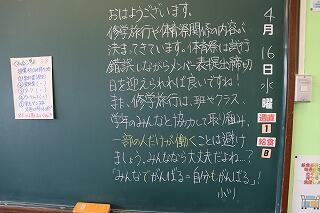 おはようございます。
修学旅行や体育祭関係の内容が
決まってきています。体育祭は試行
錯誤しながらメンバー表提出締切
日を迎えられれば良いですね!
また、修学旅行は、班やクラス、
学年のみんなと協力して取り組み、
一部の人だけが働くことは避け
ましょう。みんななら大丈夫だよね…?
「みんなでがんばる=自分もがんばる」!
4月16日水曜
週直
1
給食
B